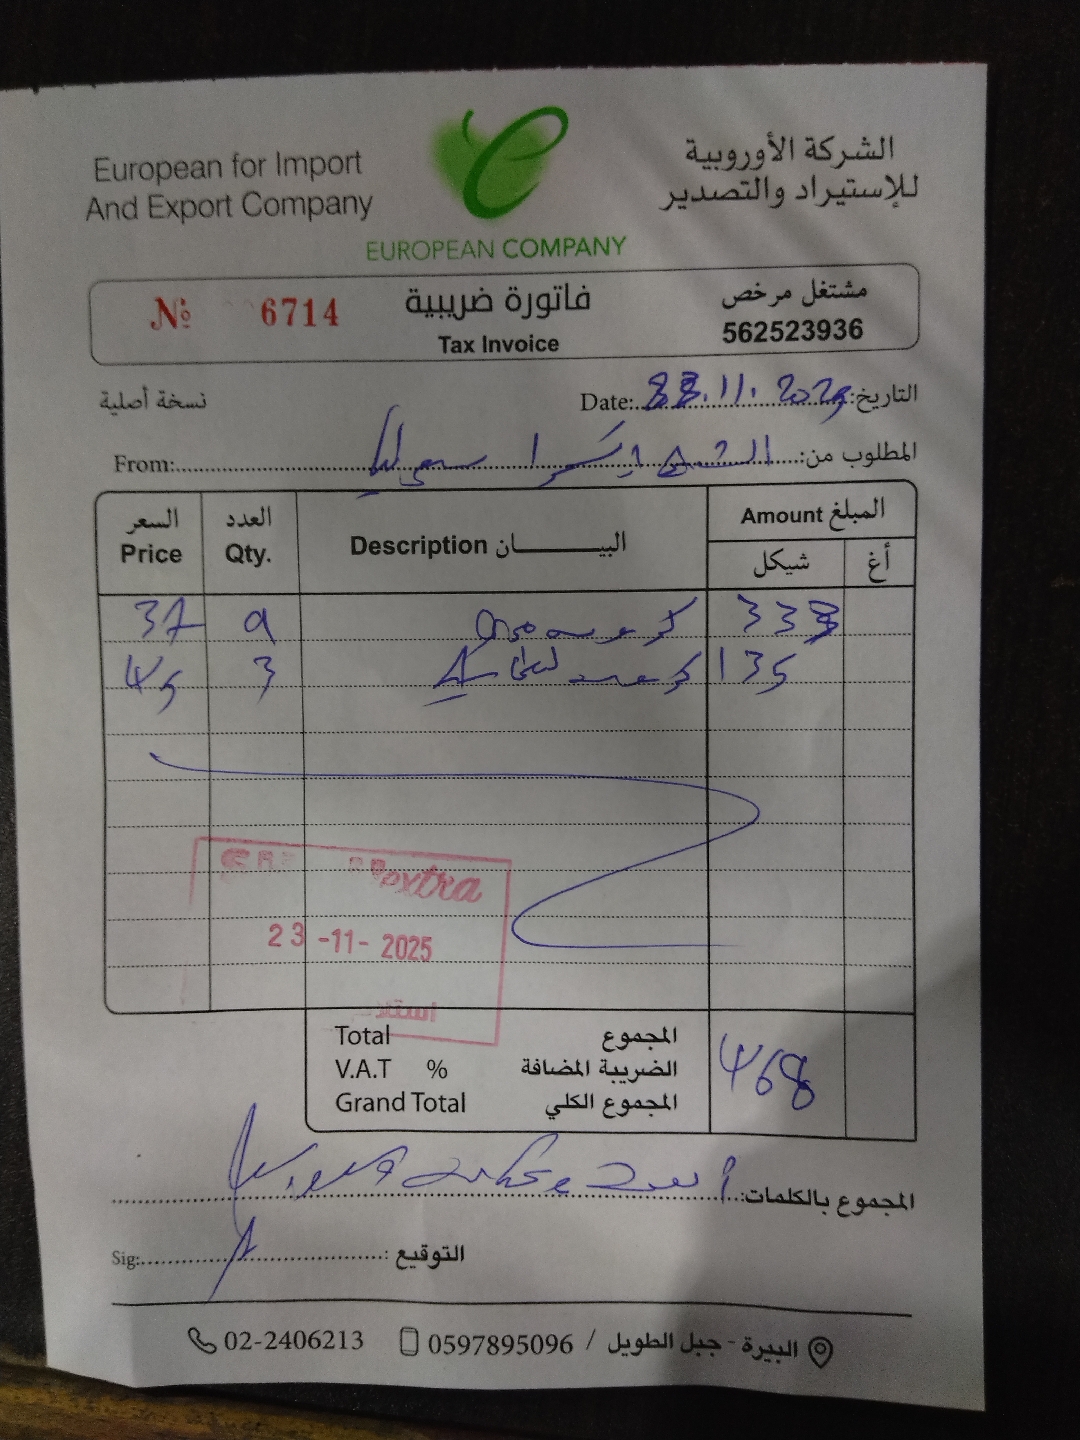 European for Import
And Export Company
الشركة الأوروبية
للإستيراد والتصدير
EUROPEAN COMPANY
№ 6714
فاتورة ضريبية
Tax Invoice
مشتغل مرخص
562523936
نسخة أصلية
Date: 23.11.2025 التاريخ:
From: المطلوب من:
السعر Price
العدد Qty.
Description البيـــــــان
Amount المبلغ
شيكل
أغ
37 9 333
45 3 135
extra
23-11-2025
Total المجموع
V.A.T % الضريبة المضافة
Grand Total المجموع الكلي
468
المجموع بالكلمات:
Sig: التوقيع :
02-2406213 0597895096 / البيرة - جبل الطويل